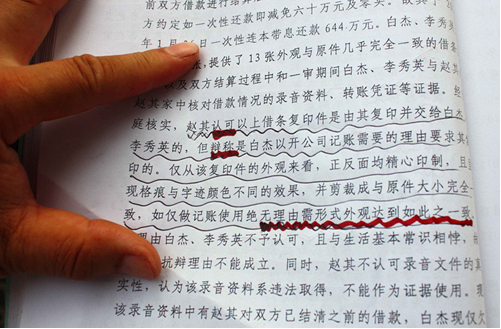 前双方借款进行结算
方约定如一次性还款即减免六十万元及零头。
一次性连本带息还款 644 万元。白杰、李秀英
提供了 13 张外观与原件几乎完全一致的借条
以及双方结算过程中和一审期间白杰、李秀英与赵其
赵其家中核对借款情况的录音资料、转账凭证等证据。经
庭核实，赵其认可以上借条复印件是由其复印并交给白杰
李秀英的，但辩称是白杰以开公司记账需要的理由要求其
印的。仅从该复印件的外观来看，正反面均精心印制，且
现格痕与字迹颜色不同的效果，并剪裁成与原件大小完全
致，如仅做记账使用绝无理由需形式外观达到如此之一致
理由白杰、李秀英不予认可，且与生活基本常识相悖，
抗辩理由不能成立。同时，赵其不认可录音文件的真
实性，认为该录音资料系违法取得，不能作为证据使用。现
该录音资料中有赵其对双方已结清之前的借款，白杰现仅欠